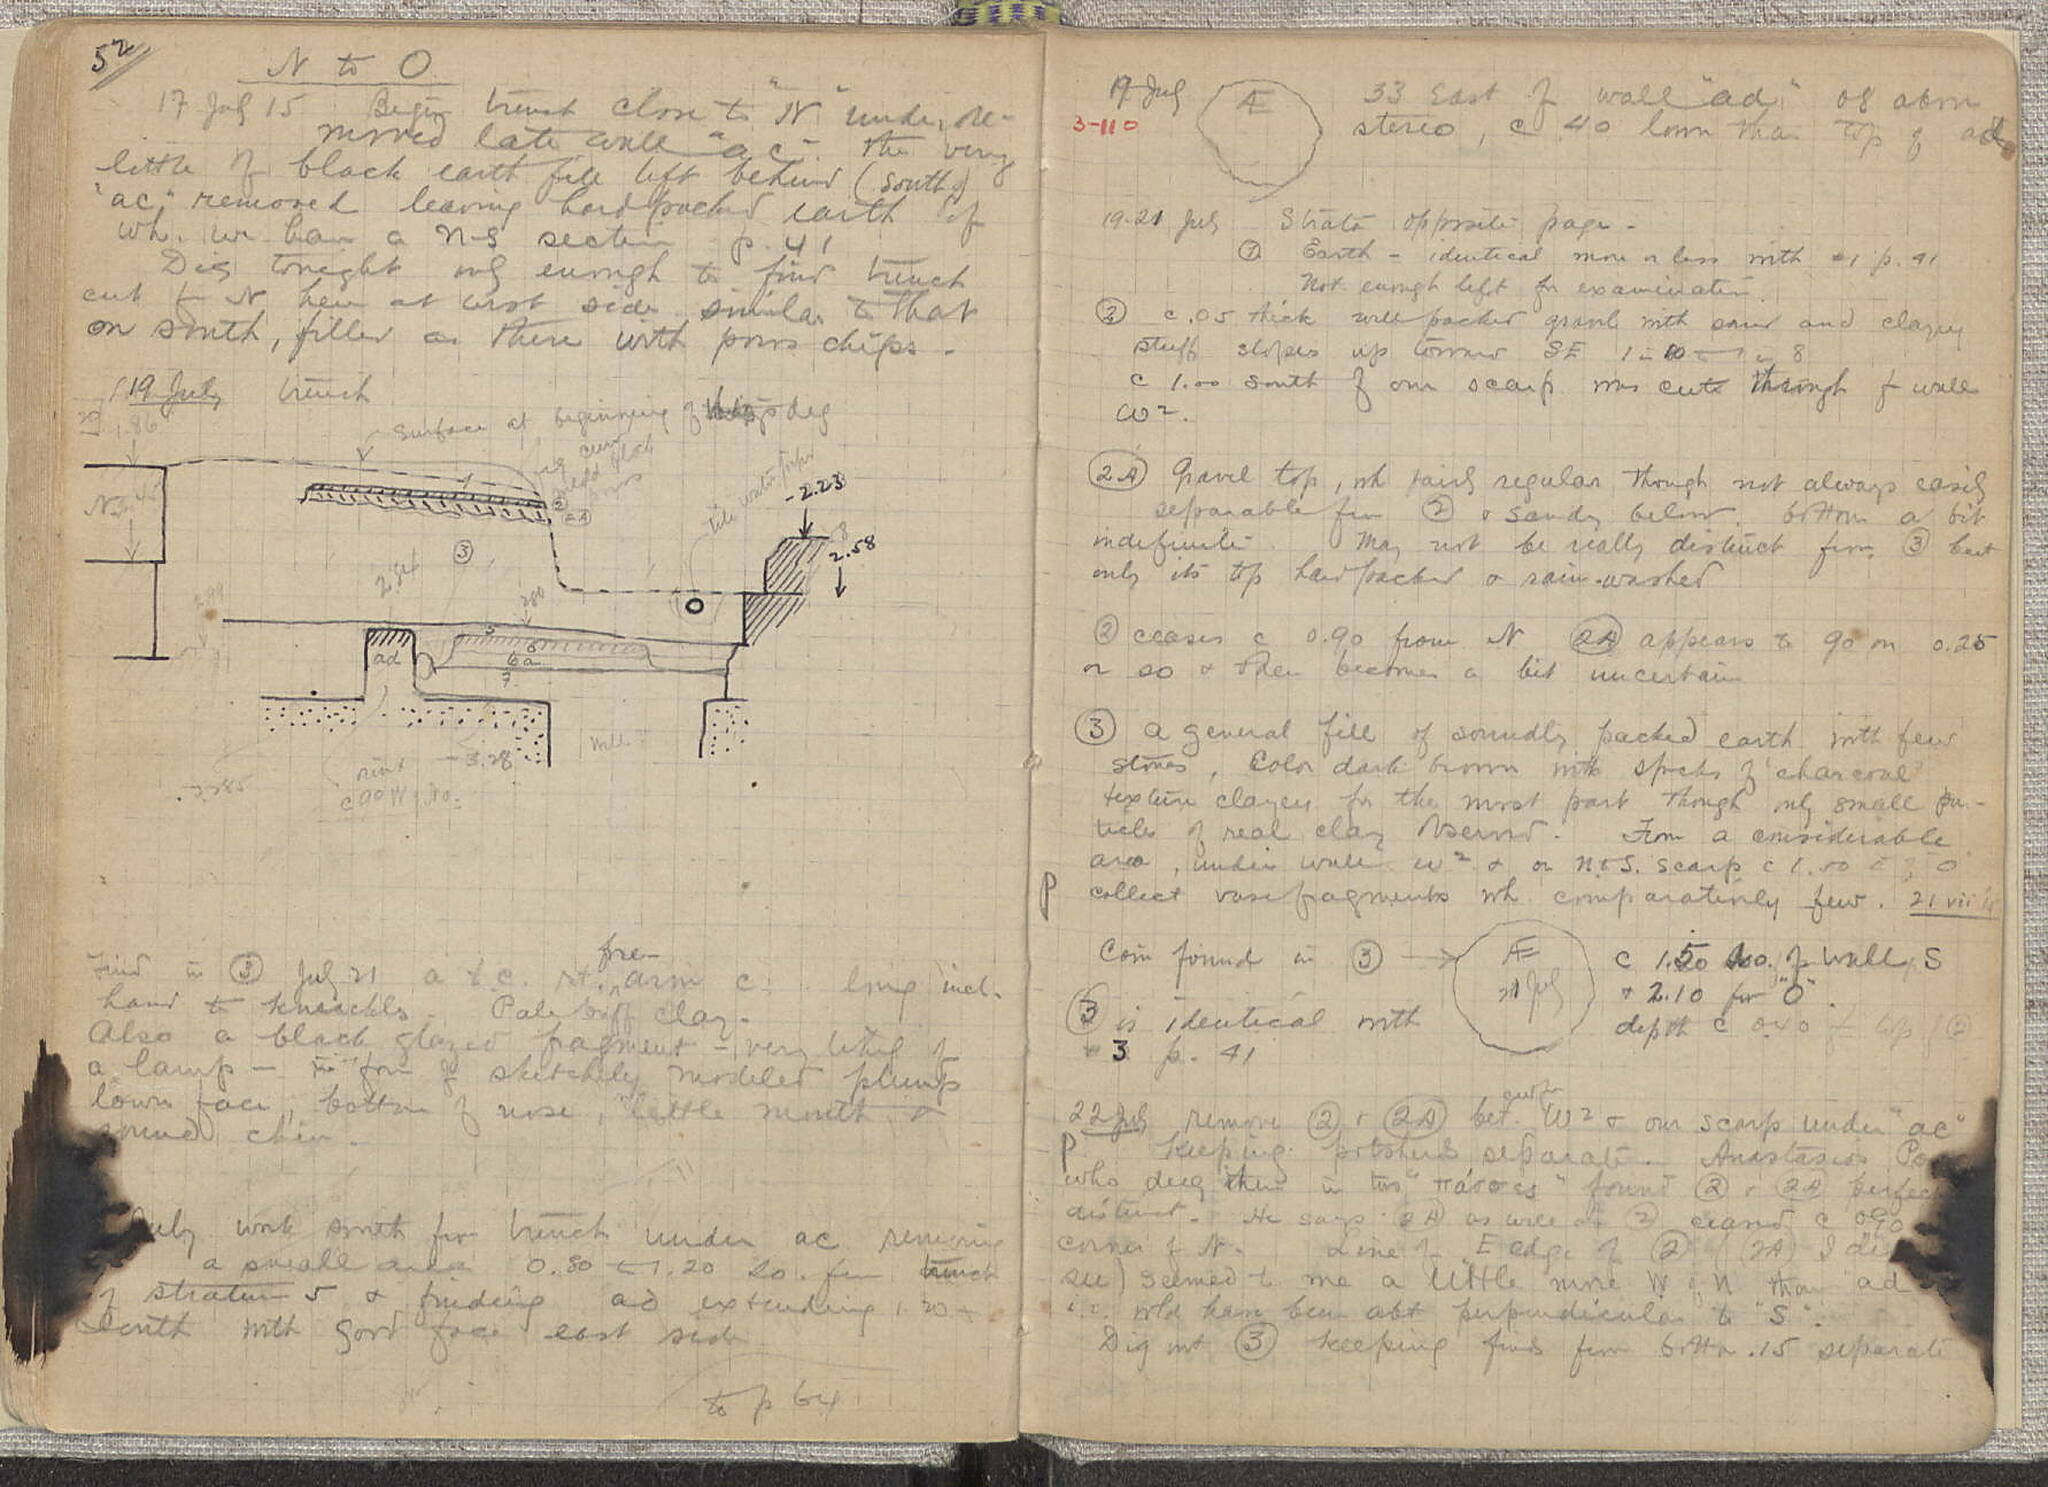 52
N to O
17 July 15 Begin trench close to "N" under re-
moved late wall "ac". The very
little of black earth fill left behind (south of
"ac" removed leaving hard packed earth of
wh. we have a N-S section p. 41
Dig tonight only enough to find trench
cut for N here at west side similar to that
on south, filled as there with poros chips.
19 July trench
1.86
surface at beginning of dig
N 3.45
1
2
2A
3
tile water pipe
-2.23
2.58
2.84
2.80
2.99
5
6
6a
7
ad
well
-3.28
3.285
Find in 3 July 21 a t.c. rt. fore-arm c. long incl.
hand to knuckles. Pale buff clay.
Also a black glazed fragment - very likely of
a lamp - in form of sketchily modeled plump
lower face, bottom of nose, little mouth &
round chin.
July work south from trench under ac removing
a small area 0.80 1.20 So. from trench
of stratum 5 & finding ad extending 1.20
south with good face east side
to p 64
19 July
3-110
Æ
33 East of wall "ad" 08 above
stereo, c .40 lower than top of ad
19-21 July Strata opposite page.
1 Earth - identical more or less with #1 p. 41
Not enough left for examination.
2 c .05 thick well packed gravel with sand and clayey
stuff slopes up toward SE 1 in 10 1 in 8
c 1.00 south of our scarp was cut through for wall
W².
2A Gravel top, wh fairly regular though not always easily
separable from 2 & sandy below. bottom a bit
indefinite. May not be really distinct from 3 but
only its top hard packed & rain-washed
2 ceases c 0.90 from N 2A appears to go on 0.25
or so & then becomes a bit uncertain
3 a general fill of soundly packed earth with few
stones, Color dark brown with specks of charcoal
texture clayey for the most part though only small par-
ticles of real clay observed. From a considerable
area, under wall W² & on N & S. scarp c 1.00 O
P collect vase fragments wh. comparatively few. 21 vii
Coin found in 3 → Æ 21 July c 1.50 No. of wall S
& 2.10 from "O".
3 is identical with depth c 0.40 top 2
#3 p. 41
22 July remove 2 & 2A bet. W² & our scarp under "ac"
P keeping potsherds separate. Anastasios
who dug them in two "πάσσες" found 2 & 2A perfec
distinct. He says 2A as well as 2 ceased c 0.90
corner of N. Line of E edge of 2 (2A) I di
see) seemed to me a little more W of N than ad
i.e. wld have been abt perpendicular to "S".
Dig out 3 keeping finds from bottom .15 separate